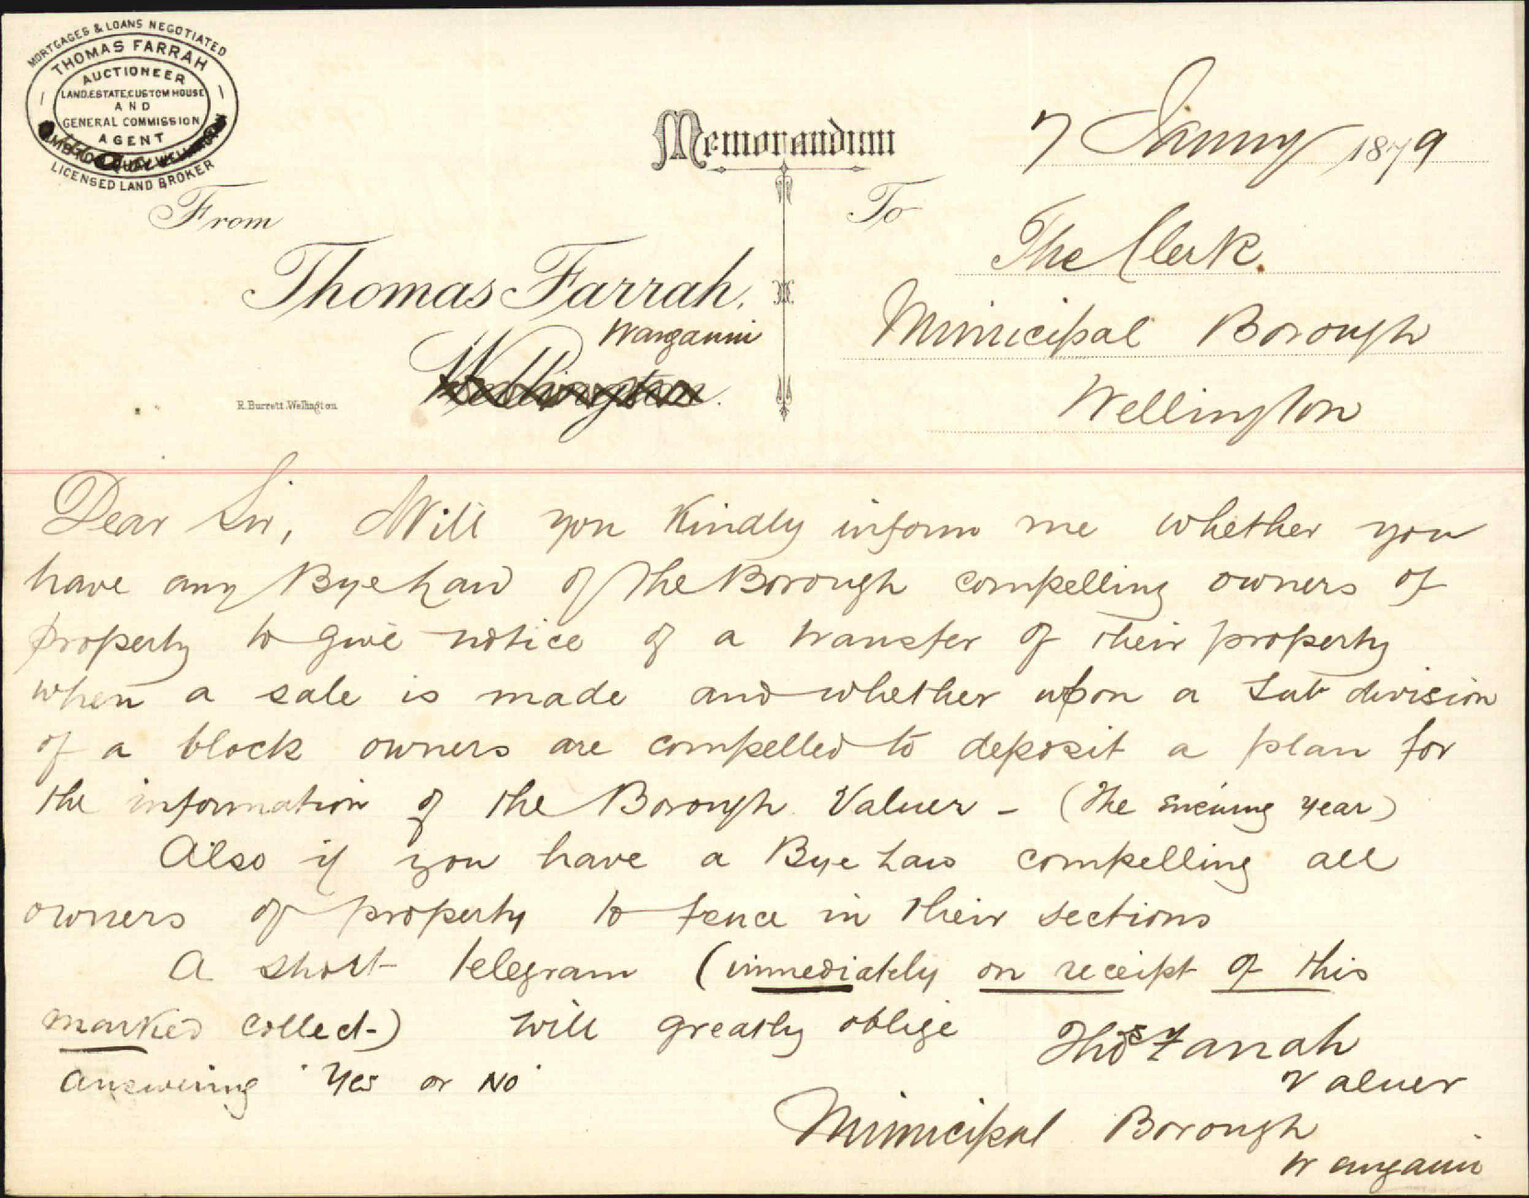 MORTGAGES & LOANS NEGOTIATED
THOMAS FARRAH
AUCTIONEER
LAND, ESTATE, CUSTOM HOUSE
AND
GENERAL COMMISSION
AGENT
LICENSED LAND BROKER
Memorandum
7 January 1879
From
To
The Clerk.
Thomas Farrah.
Wanganui
Municipal Borough
Wellington.
R. Burrett. Wellington
Wellington
Dear Sir, Will you Kindly inform me whether you
have any Bye Law of the Borough compelling owners of
property to give notice of a transfer of their property
when a sale is made and whether upon a Sub division
of a block owners are compelled to deposit a plan for
the information of the Borough Valuer - (The ensuing year)
Also if you have a Bye Law compelling all
owners of property to fence in their sections
A short telegram (immediately on receipt of this
marked collect-) will greatly oblige
Thos Farrah
answering "Yes or No"
Valuer
Municipal Borough
Wanganui